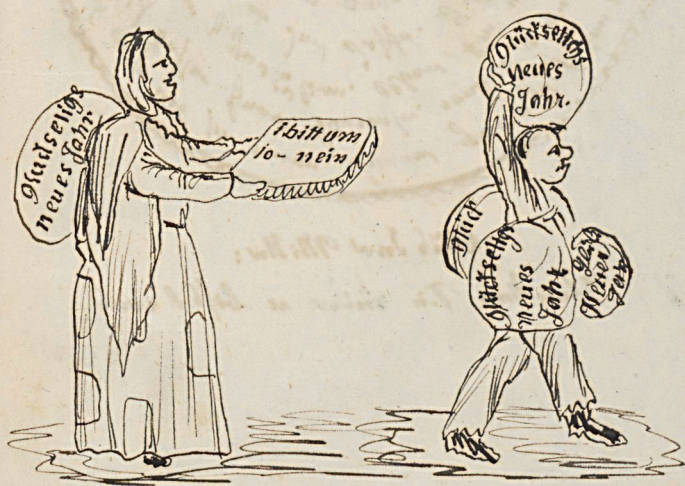 Glückseligs
neues Jahr
i bitt um
io- nein
Glückseligs
neues
Jahr.
Glück
Glückseligs
neues
Jahr
Neues